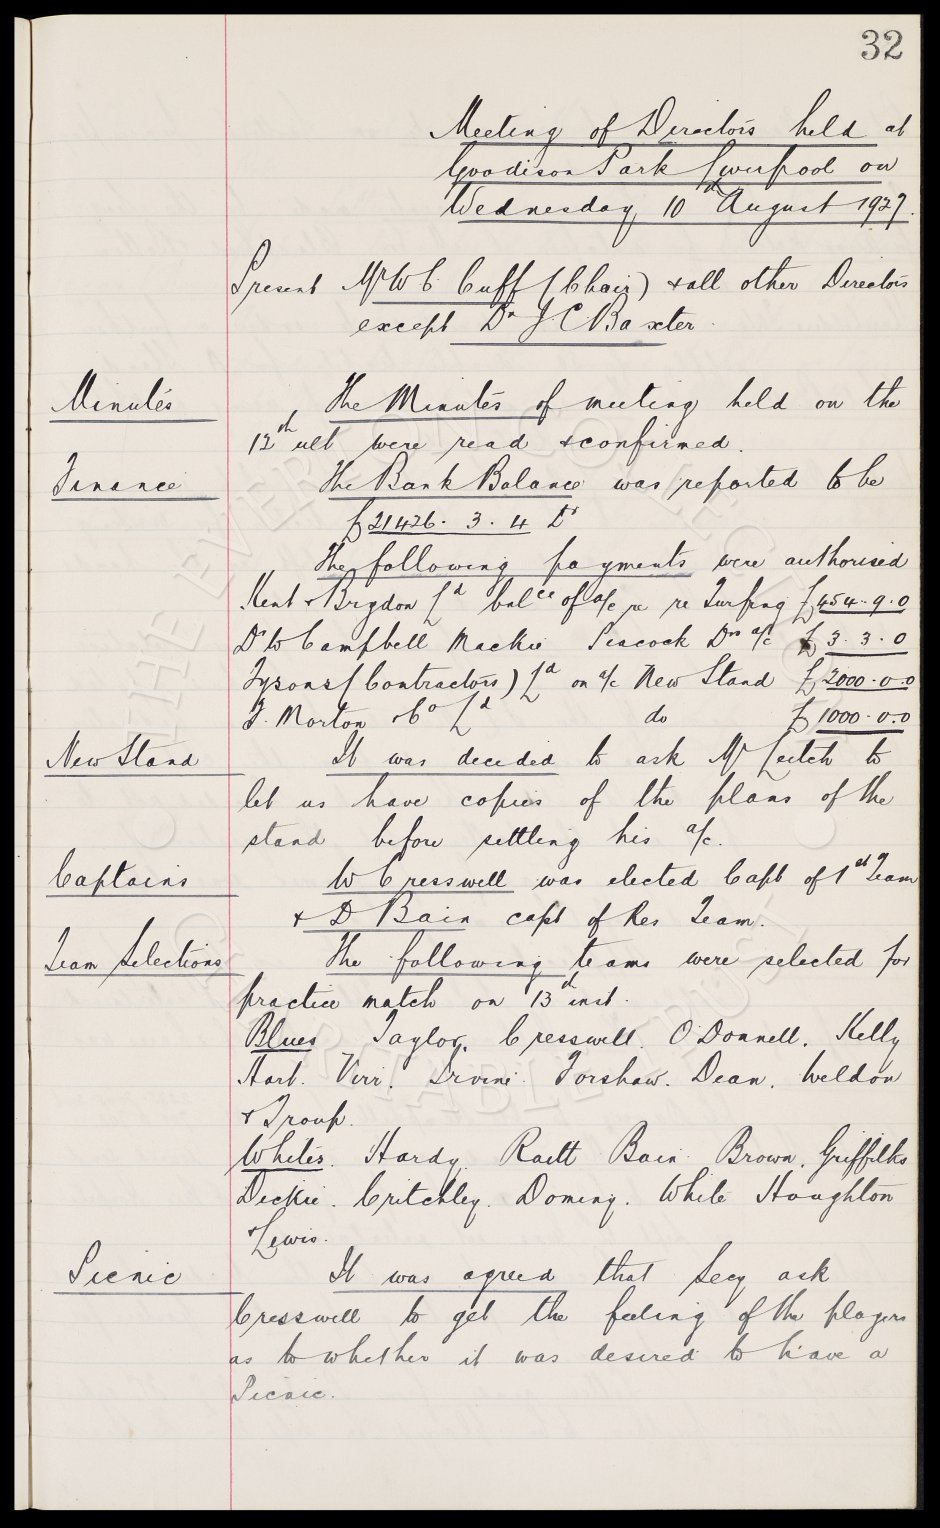 32
Meeting of Directors held at
Goodison Park Liverpool on
Wednesday, 10th August 1927.
Present Mr W C Cuff (Chair) & all other Directors
except Dr J C Baxter.
Minutes The Minutes of meeting held on the
12th ult were read & confirmed.
Finance The Bank Balance was reported to be
£21426. 3. 4 Dr
The following payments were authorised
Kent & Brydon Ld balce of a/c re re Turfing £454. 9. 0
Dr W Campbell Mackie Peacock Drs a/c £3. 3. 0
Tysons (Contractors) Ld on a/c New Stand £2000. 0. 0
F. Morton & Co Ld do £1000. 0. 0
New Stand It was decided to ask Mr Leitch to
let us have copies of the plans of the
stand before settling his a/c.
Captains W Cresswell was elected Capt of 1st Team
& D Bain capt of Res Team.
Team Selections The following teams were selected for
practice match on 13th inst.
Blues Taylor, Cresswell. O'Donnell. Kelly
Hart. Virr. Irvine. Forshaw. Dean. Weldon
& Troup.
Whites. Hardy. Raitt Bain Brown. Griffiths
Dickie. Critchley. Doming. White Houghton
& Lewis.
Picnic It was agreed that Secy ask
Cresswell to get the feeling of the players
as to whether it was desired to have a
Picnic.
THE EVERTON COLLECTION
CHARITABLE TRUST